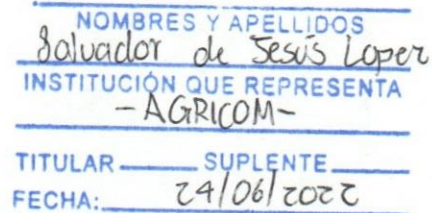 NOMBRES Y APELLIDOS
Salvador de Jesús Lopez
INSTITUCIÓN QUE REPRESENTA
- AGRICOM -
TITULAR______ SUPLENTE______
FECHA: 24/06/2022